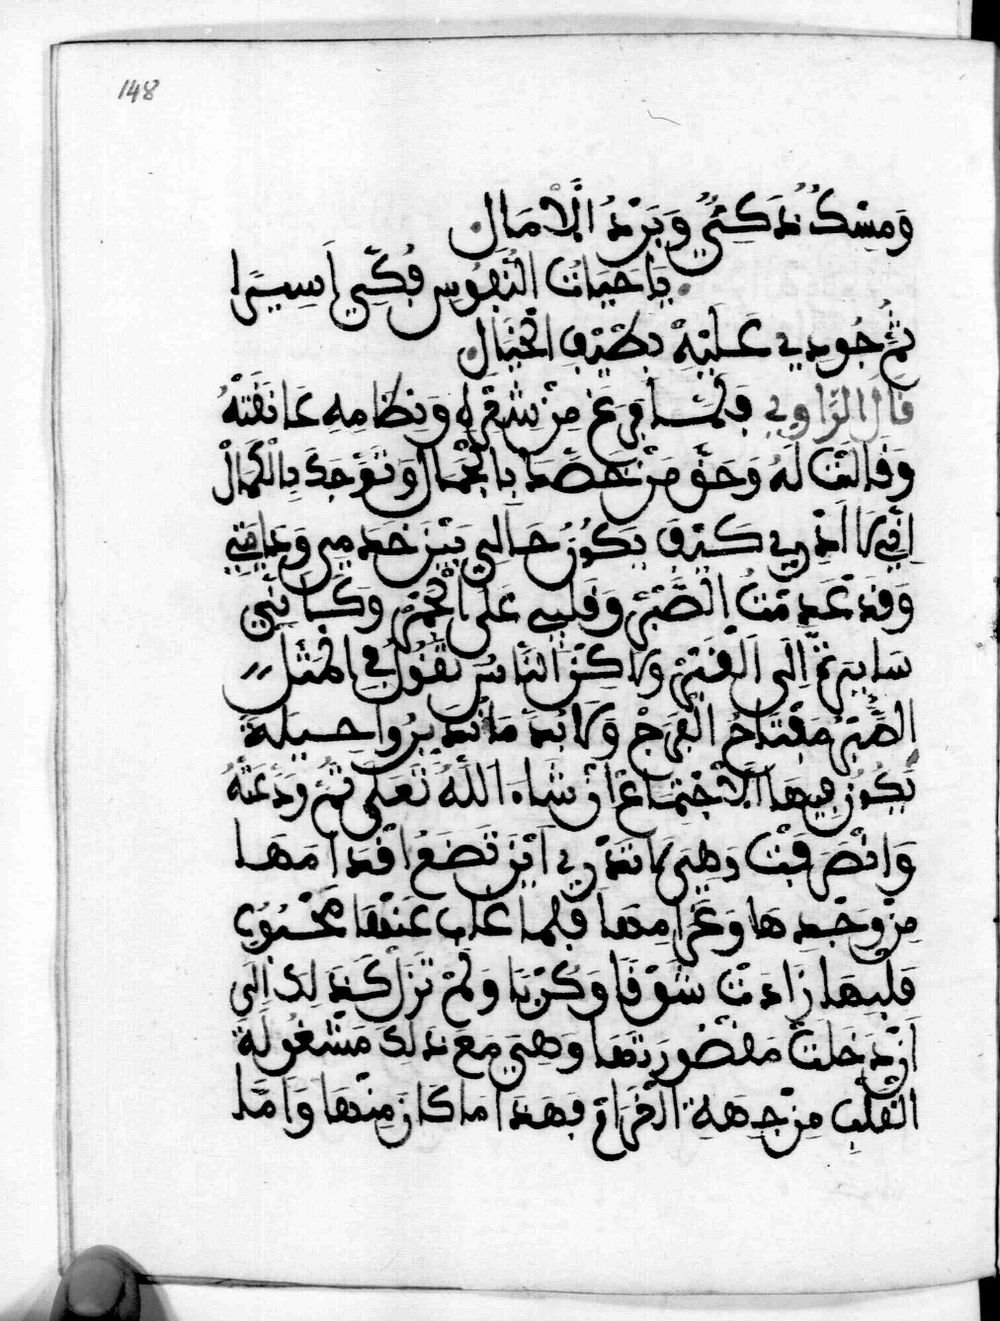 148
وَمِسْكٌ ذَكِيٌّ وَبَرْدُ اَلْاَمَالِ
يَا حَيَاتَ النُّفُوسِ فُكِّي اَسِيرًا
ثُمَّ جُودِي عَلَيْهِ بِطَيْفِ الْخَيَالِ
قال الرَّاوِي فلمّا فرغ مِنْ شعره ونظامه عانقتهُ
وقالت له وحق من خصك بالجمال وتوّجك بالكمال
اني لا ادري كيف يكون حالي بين خدمي وداقتي
وقد عدمت الصبر وقلبي على الجمر وكانّي
سايرة الى القبر ولاكن الناس تقول في المثل
الصبر مفتاح الفرج ولابد ما ندبروا حيلة
يكون فيها الاجتماع ان شاء الله تعلى ثم ودعته
وانصرفت وهي لا تدري اين تضع اقدامها
من وجدها وغرامها فلما غاب عنها محبوب
قلبها زادت شوقا وكربا ولم تزل كذلك الى
ان دخلت مقصورتها وهي مع ذلك مشغولة
القلب من جهة الفراق فهذا ما كان منها واما